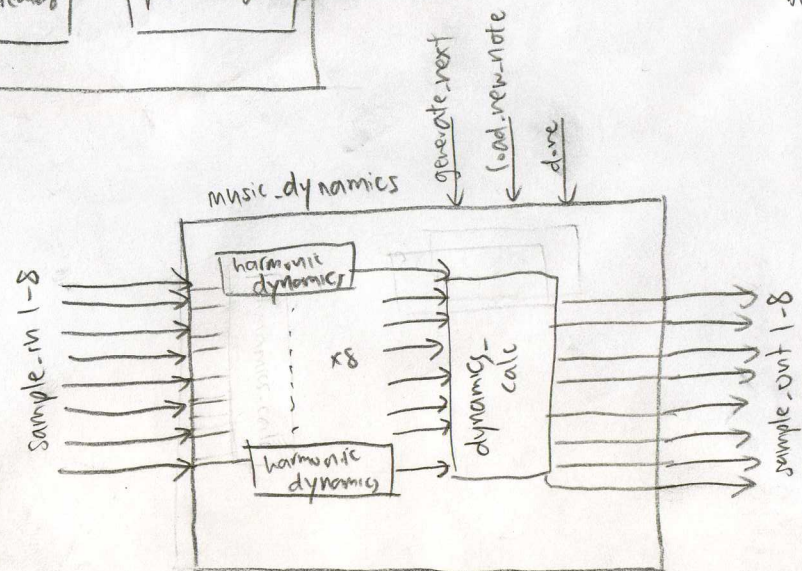 generate_next
load_new_note
done
music_dynamics
sample_in 1-8
harmonic
dynamics
x8
harmonic
dynamics
dynamics_
calc
sample_out 1-8